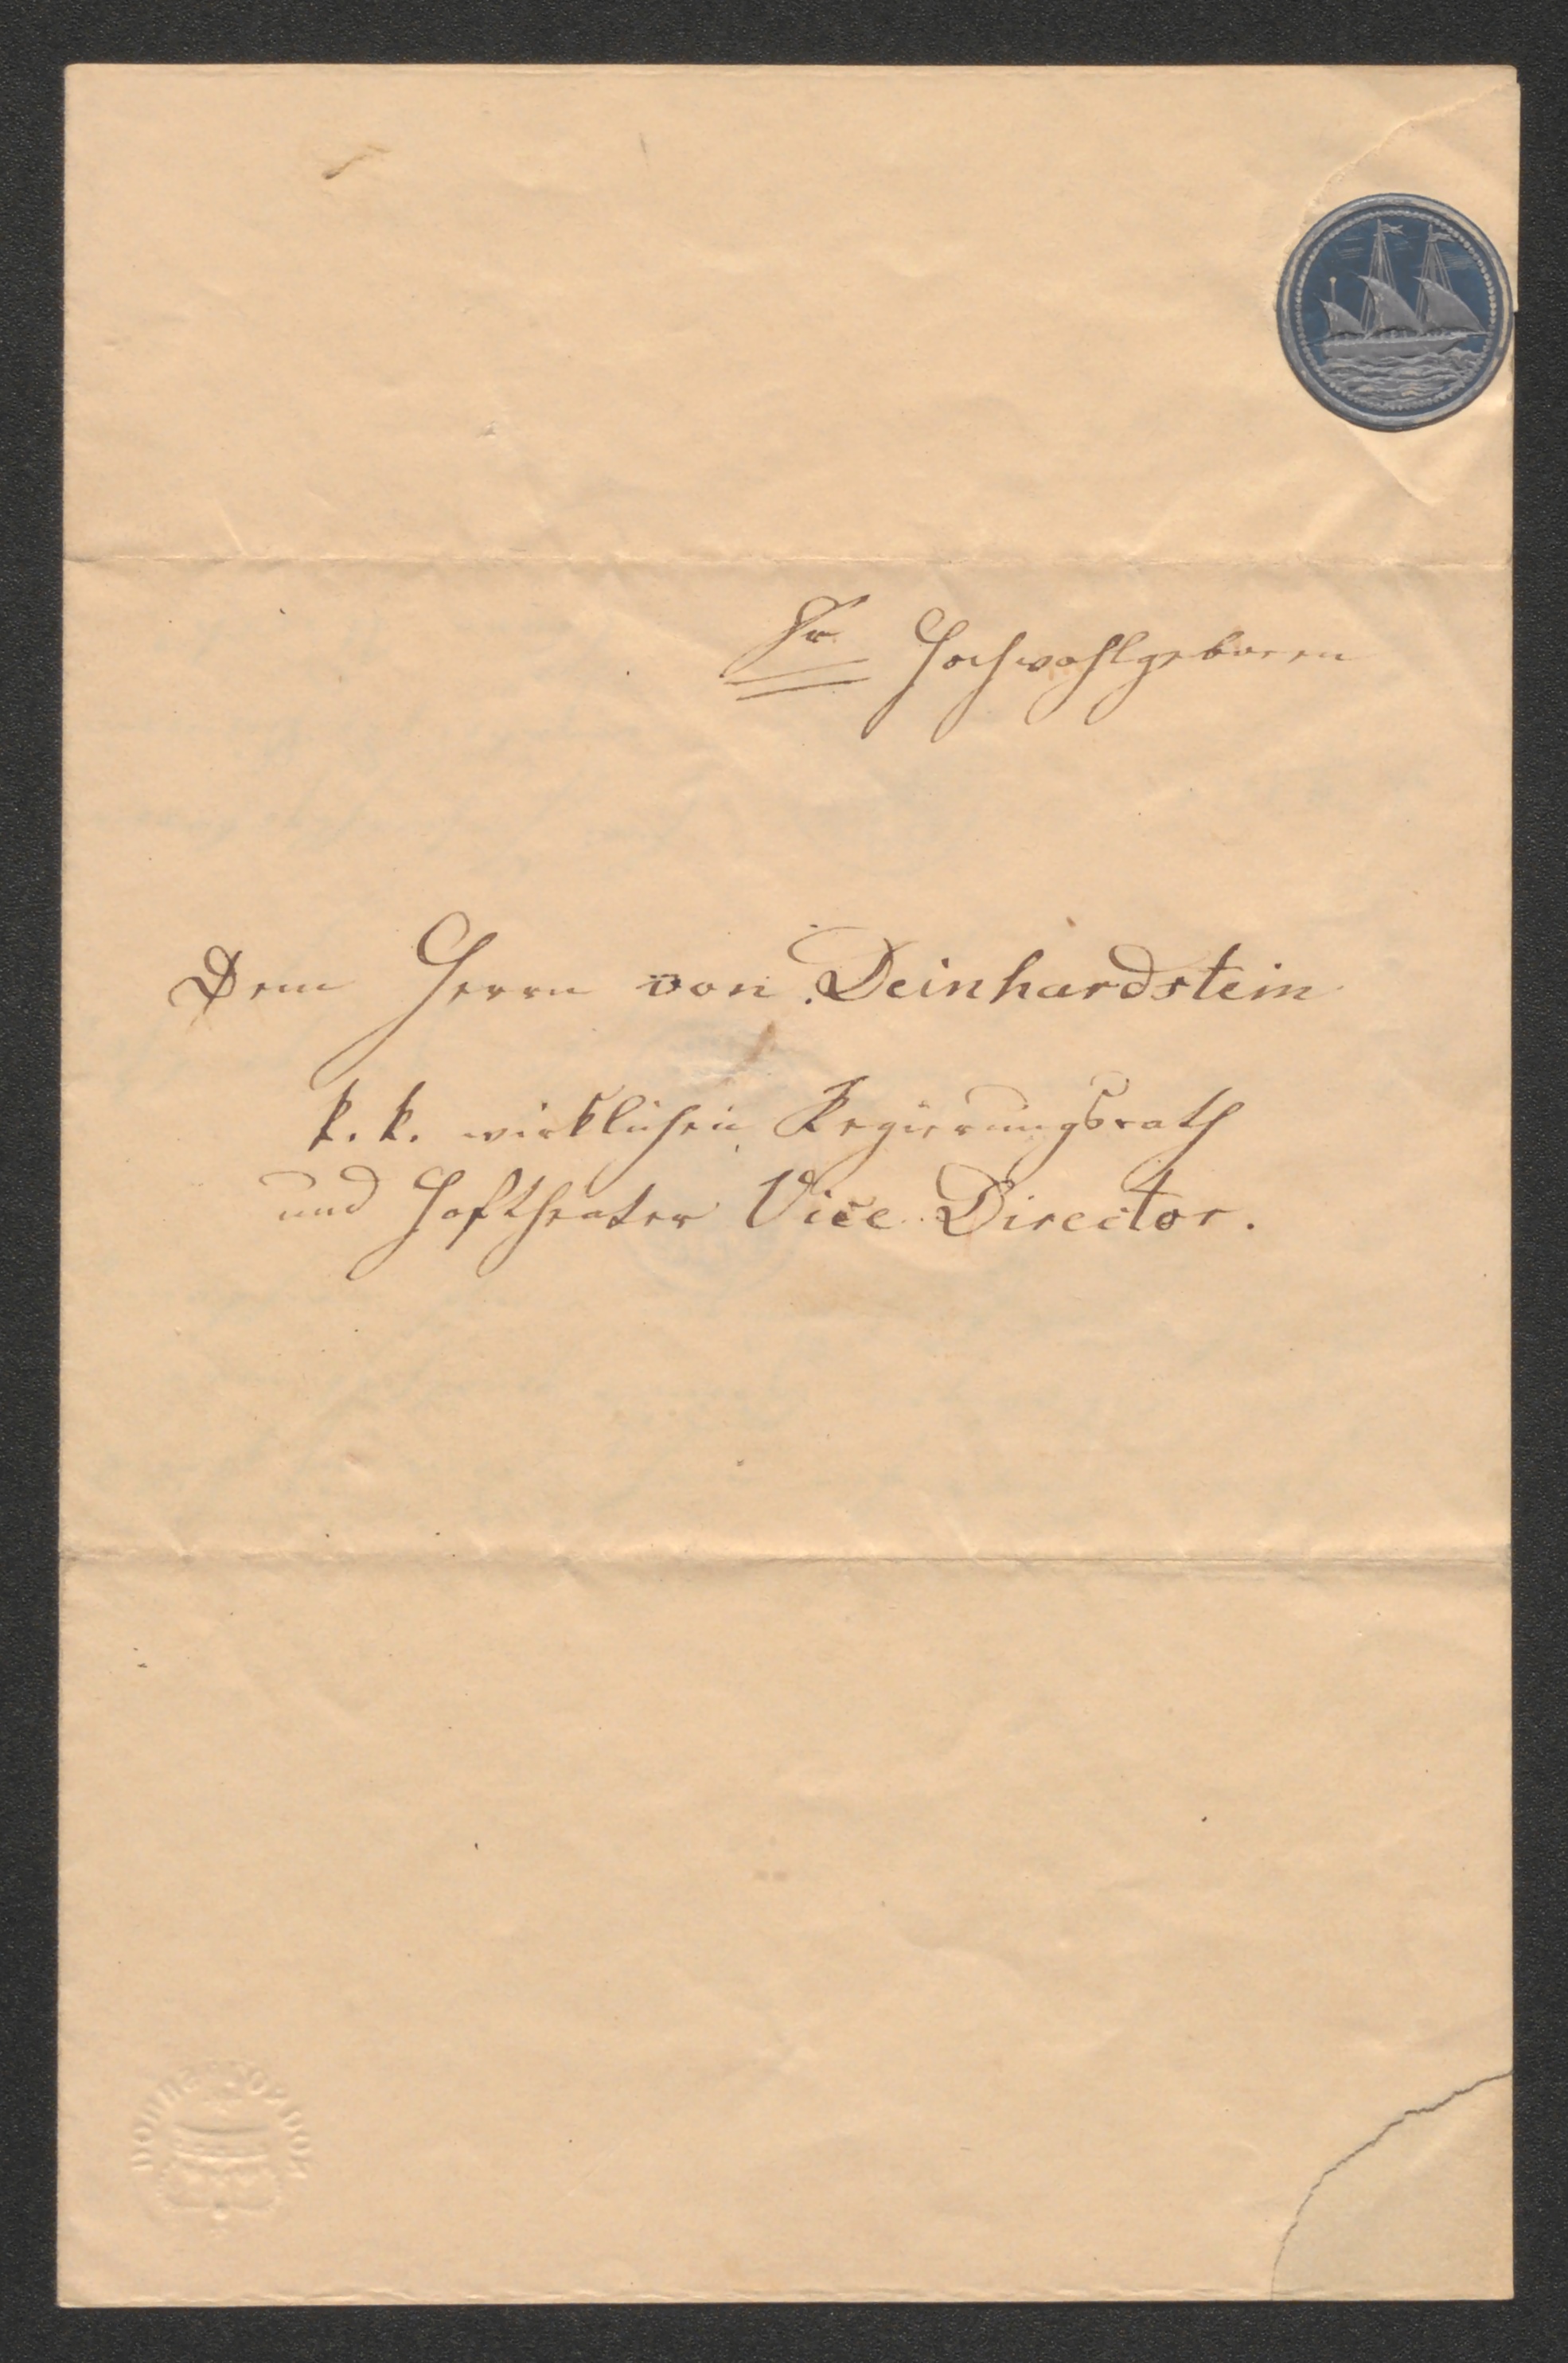 Sr Hochwohlgeboren
Dem Herrn von Deinhardstein
k. k. wirklichen Regierungsrath
und Hoftheater Vice Director.